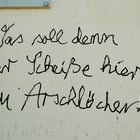 Was soll denn
er Scheiße hier
ihr Arschlöcher